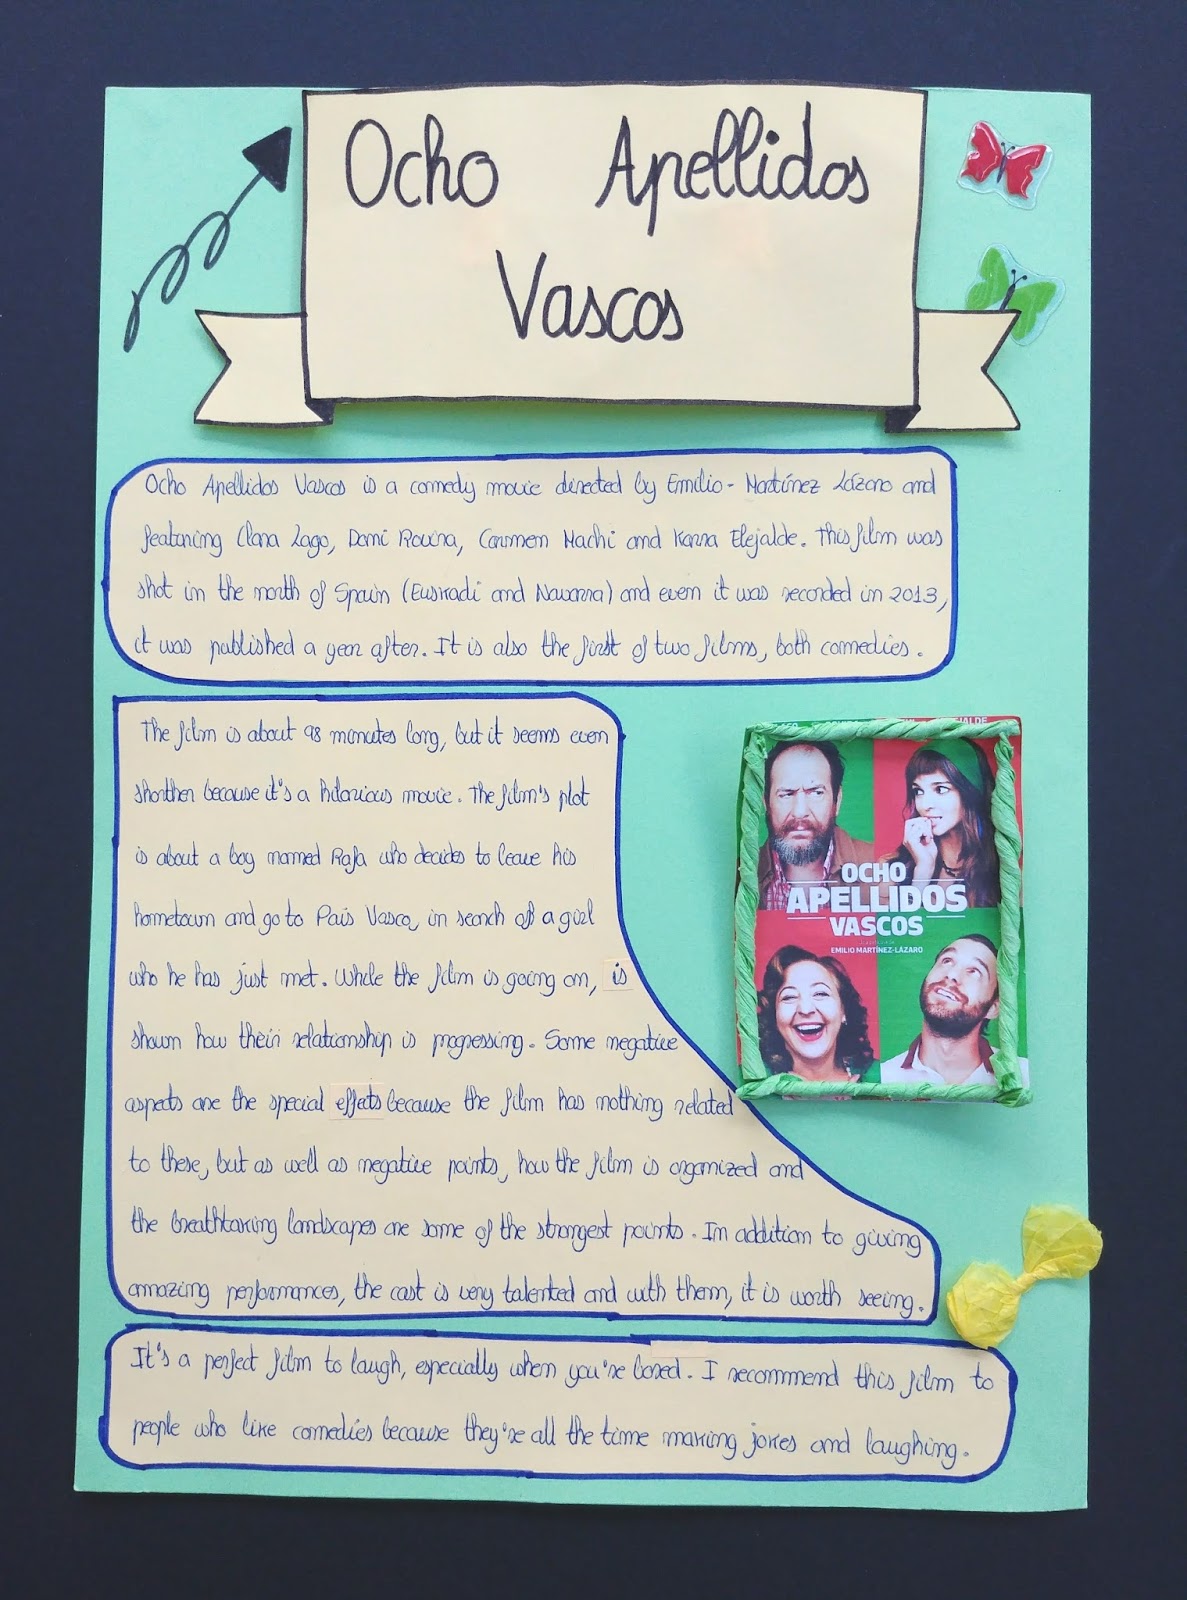 Ocho Apellidos
Vascos
Ocho Apellidos Vascos is a comedy movie directed by Emilio-Martínez Lázaro and
featuring Clara Lago, Dani Rovira, Carmen Machi and Karra Elejalde. This film was
shot in the north of Spain (Euskadi and Navarra) and even it was recorded in 2013,
it was published a year after. It is also the first of two films, both comedies.
The film is about 98 minutes long, but it seems even
shorther because it's a hilarious movie. The film's plot
is about a boy named Rafa who decides to leave his
hometown and go to País Vasco, in search of a girl
who he has just met. While the film is going on, is
shown how their relationship is progressing. Some negative
aspects are the special effects because the film has nothing related
to these, but as well as negative points, how the film is organized and
the breathtaking landscapes are some of the strongest points. In addition to giving
amazing performances, the cast is very talented and with them, it is worth seeing.
OCHO
APELLIDOS
VASCOS
EMILIO MARTÍNEZ-LÁZARO
It's a perfect film to laugh, especially when you're bored. I recommend this film to
people who like comedies because they're all the time making jokes and laughing.